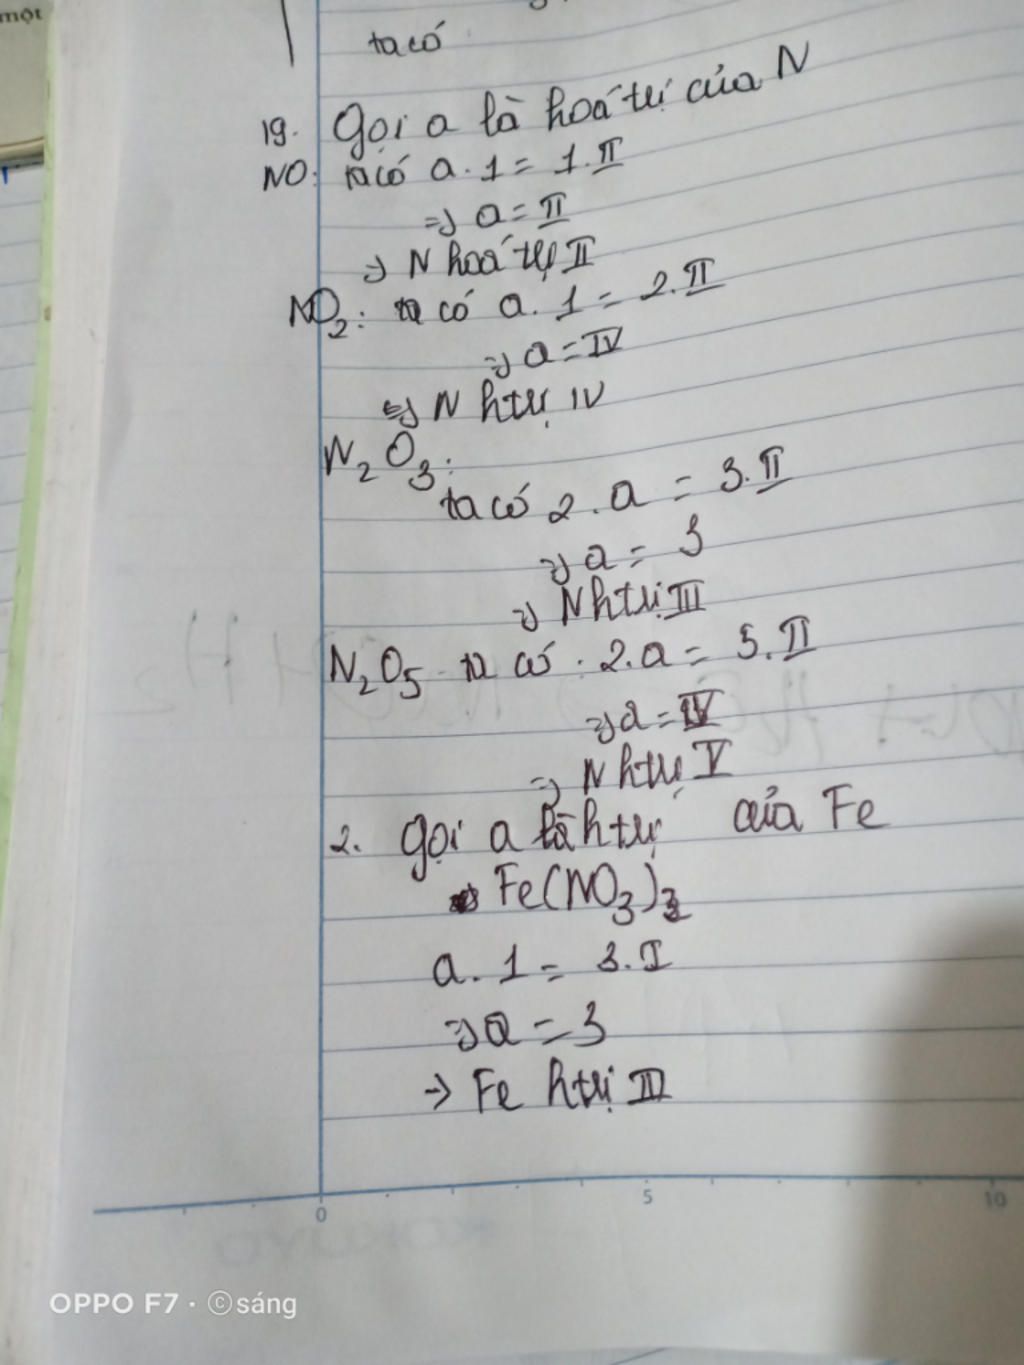 một
ta có
19. Gọi a là hoá trị của N
NO: ta có a.1 = 1.II
=> a = II
=> N hoá trị II
NO₂: ta có a.1 = 2.II
=> a = IV
=> N htrị IV
N₂O₃:
ta có 2.a = 3.II
=> a = 3
=> N htrị III
N₂O₅ ta có : 2.a = 5.II
=> a = IV
=> N htrị V
2. gọi a là htrị của Fe
Fe(NO₃)₃
a.1 = 3.I
=> a = 3
-> Fe htrị III
0 5 10
KOKUYO
OPPO F7 · ©sáng